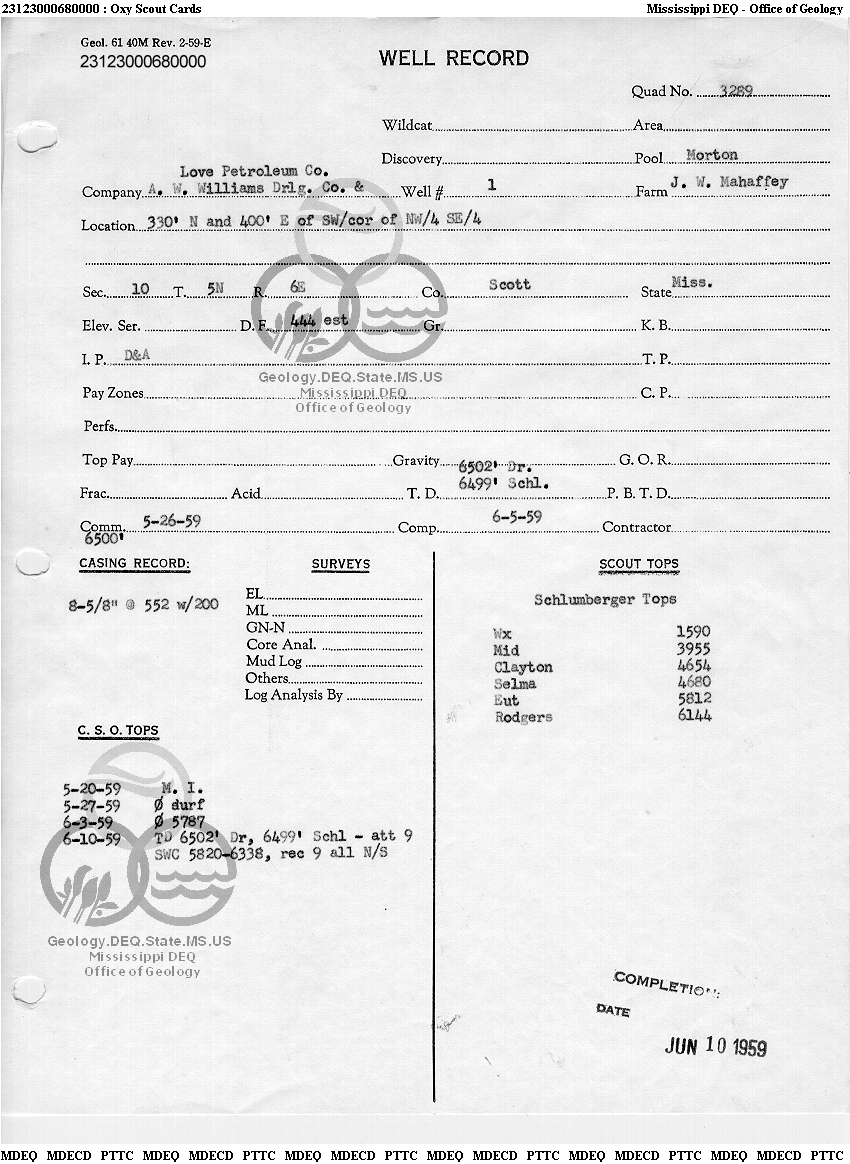 23123000680000 : Oxy Scout Cards Mississippi DEQ - Office of Geology
Geol. 61 40M Rev. 2-59-E
23123000680000
WELL RECORD
Quad No. 3289
Wildcat Area
Discovery Pool Morton
Love Petroleum Co.
Company A. W. Williams Drlg. Co. & Well # 1 Farm J. W. Mahaffey
Location 330' N and 400' E of SW/cor of NW/4 SE/4
Sec. 10 T. 5N R. 6E Co. Scott State Miss.
Elev. Ser. D. F. 444 est Gr. K. B.
I. P. D&A T. P.
Geology.DEQ.State.MS.US
Pay Zones C. P.
Mississippi DEQ
Office of Geology
Perfs.
Top Pay Gravity G. O. R.
6502' Dr.
Frac. Acid T. D. 6499' Schl. P. B. T. D.
Comm. 5-26-59 Comp. 6-5-59 Contractor
6500'
CASING RECORD:
8-5/8" @ 552 w/200
SURVEYS
EL
ML
GN-N
Core Anal.
Mud Log
Others
Log Analysis By
C. S. O. TOPS
5-20-59 M. I.
5-27-59 Ø durf
6-3-59 Ø 5787
6-10-59 TD 6502' Dr, 6499' Schl - att 9
SWC 5820-6338, rec 9 all N/S
Geology.DEQ.State.MS.US
Mississippi DEQ
Office of Geology
SCOUT TOPS
Schlumberger Tops
Wx 1590
Mid 3955
Clayton 4654
Selma 4680
Eut 5812
Rodgers 6144
COMPLETION:
DATE
JUN 10 1959
MDEQ MDECD PTTC MDEQ MDECD PTTC MDEQ MDECD PTTC MDEQ MDECD PTTC MDEQ MDECD PTTC MDEQ MDECD PTTC